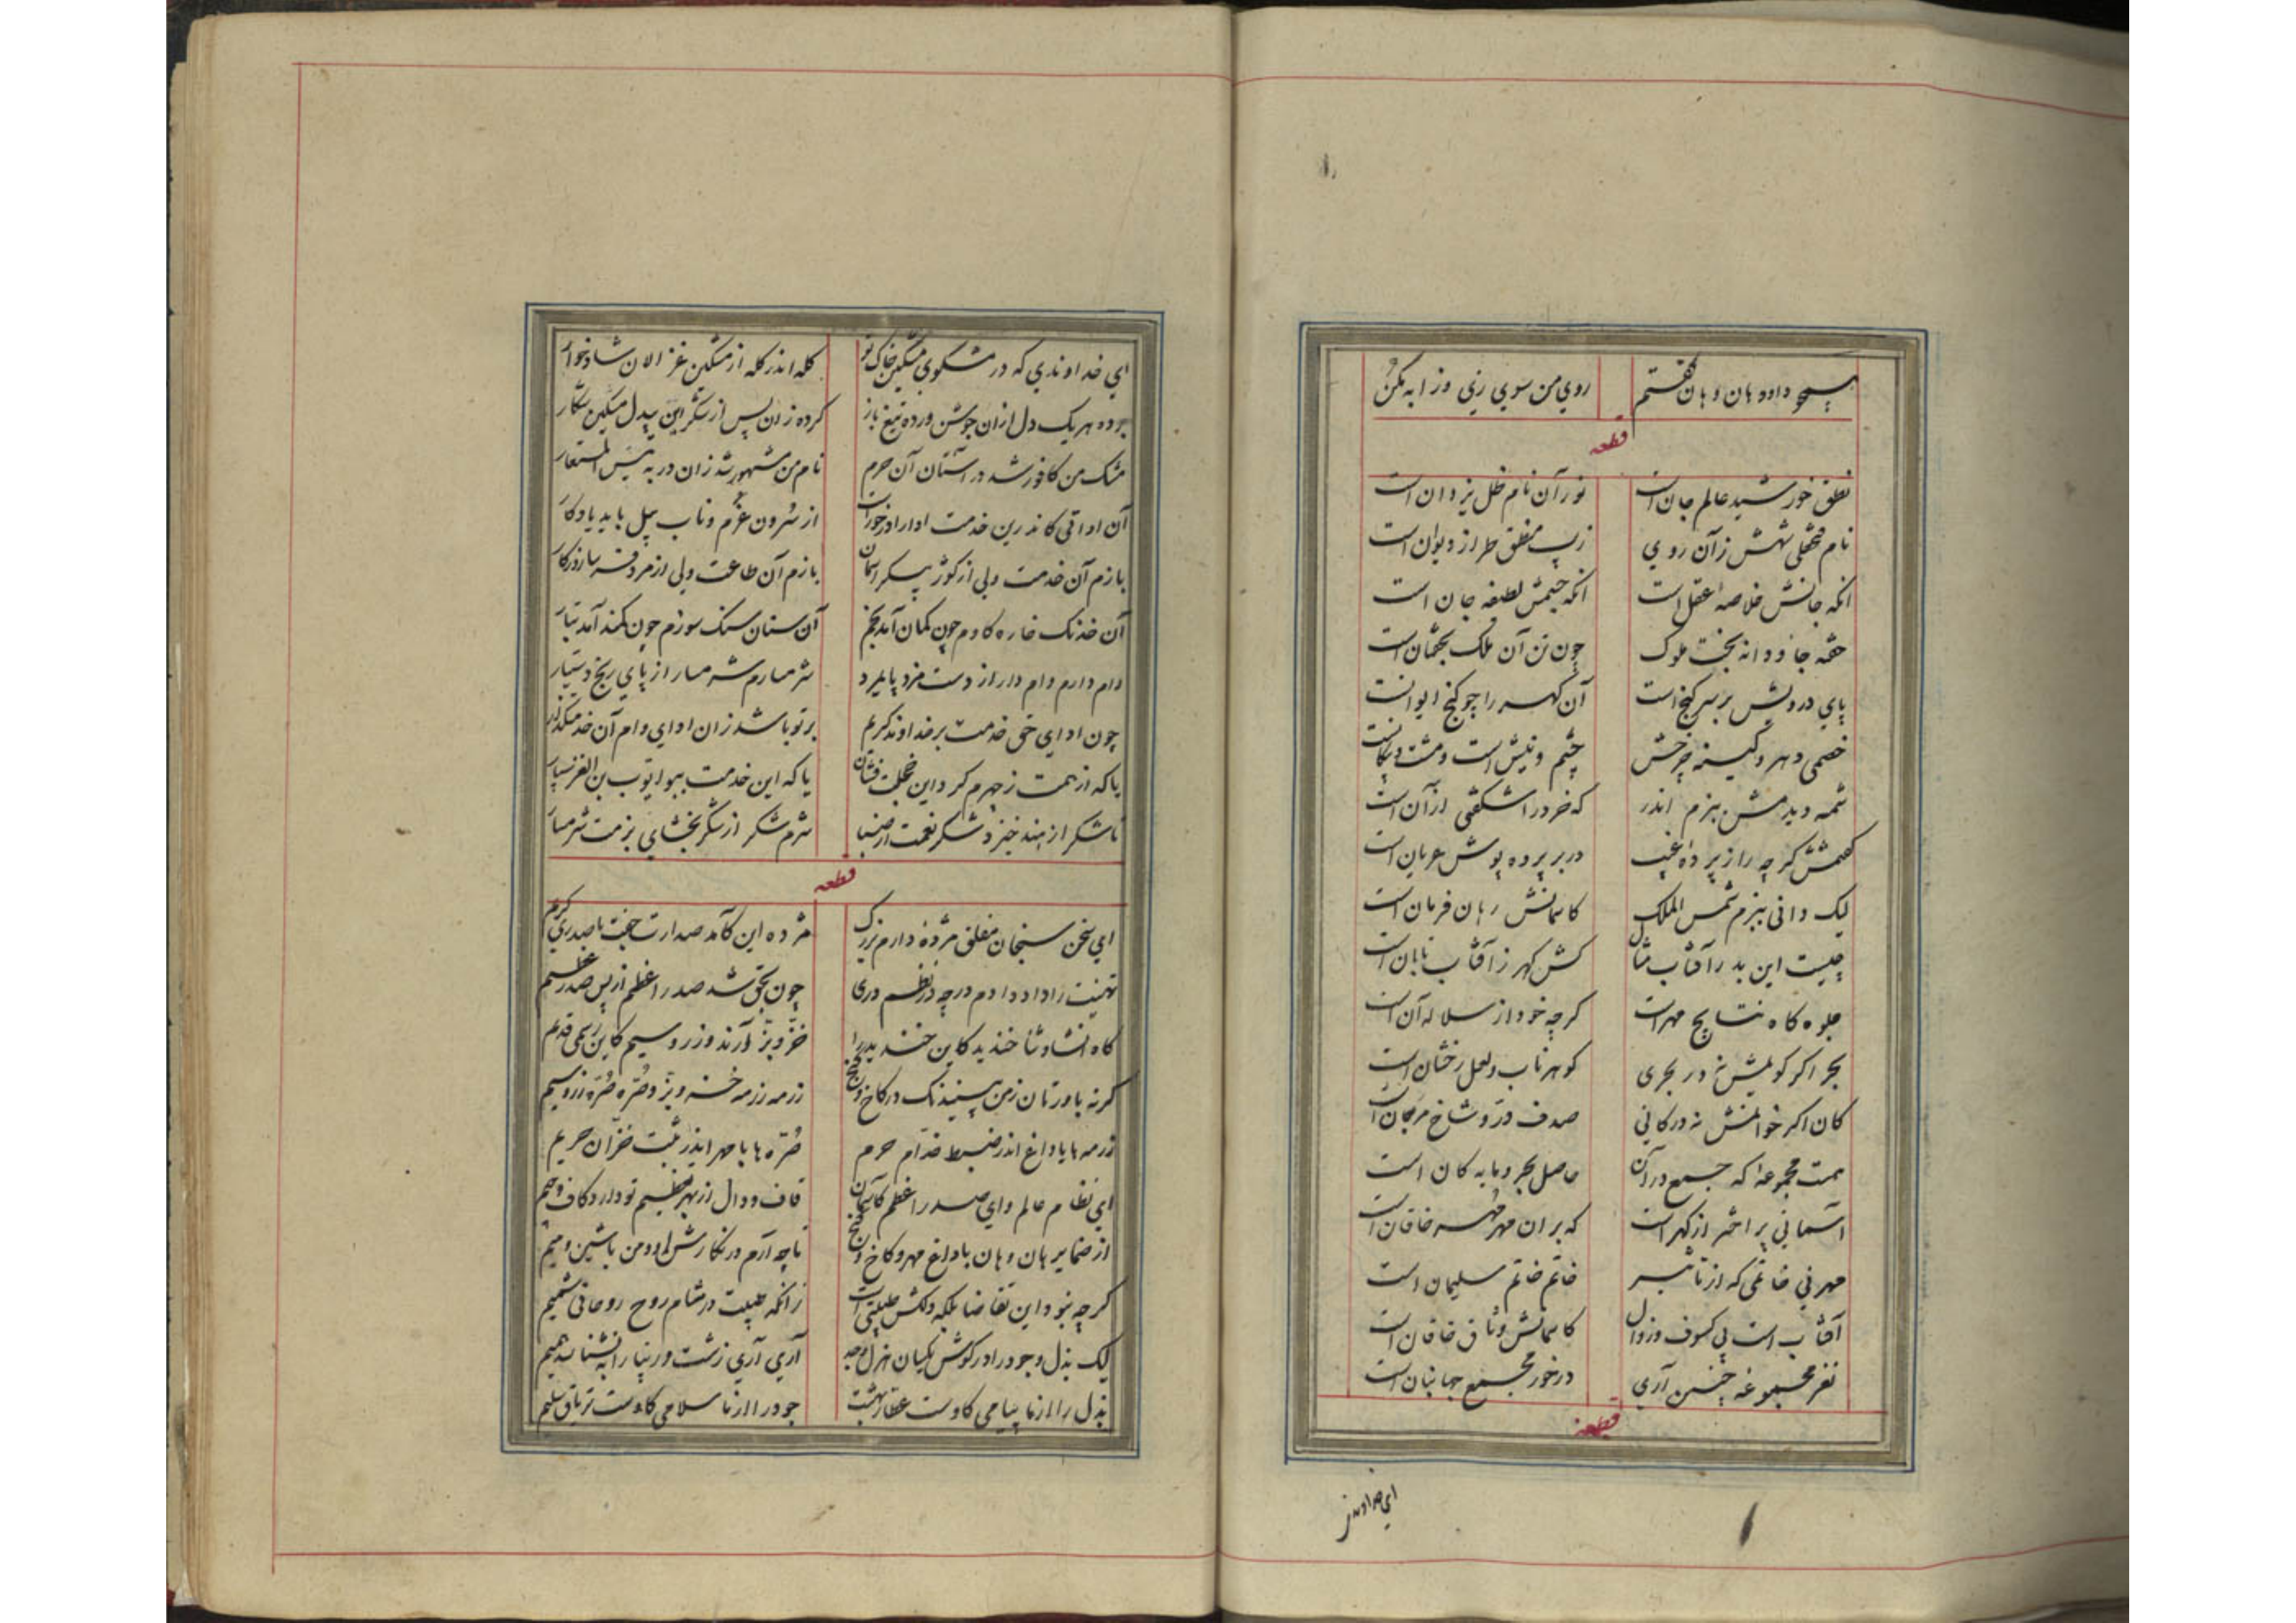 هیچ داده هان و هان گفتم روی من سوی ری وز ابه مکن
قطعه
نطق خورشید عالم جان است نور آن نام ظل یزدان است
نام فتحعلی شهش زآن روی زیب منطق طراز دیوان است
انکه جانش خلاصه عقل است انکه جسمش لطیفه جان است
جاودانه بخت ملوک چون تن آن ملک بجثمان است
پای درویش بر سر گنج است آن گهر را چو گنج ایوانست
خصمی دهر و کینه چرخش چشم و نیش است و مشت و پیکانست
شمه دیدمش ببزم اندر که خرد در اشگفتی از آن است
گفتمش گرچه راز پرده غیب در بر پرده پوش عریان است
لیک دانی ببزم شمس الملک کاسمانش رهان فرمان است
چیست این بدر آفتاب مثال کش گهر ز آفتاب تابان است
جلوه گاه نتایج مهر است گرچه خود از سلاله آن است
بحر اگر گویمش نه در بحری گوهر ناب و لعل رخشان است
کان اگر خوانمش نه در کانی صدف در و شاخ مرجان است
هست مجموعه که جمع در آن حاصل بحر و مایه کان است
آسمانی پر اختر از گهر است که بر آن مهر مهر خاقان است
مهر نی خاتمی که از تاثیر خاتم خاتم سلیمان است
آفتاب است بی کسوف و زوال کاسمانش وثاق خاقان است
نغز مجموعه چنین آری درخور مجمع جهانبان است
قطعه
ای خداوندی
ای خداوندی که در مشکوی مشکین خاک تو گله اندر گله از مشکین غزالان شادخوار
برده هر یک دل از آن جوشن ورده تیغ باز کرده زان پس از شکر این بیدل مسکین شکار
مشک من کافور شد در آستان آن حرم نام من مشهور شد زان در به بئس المستعار
آن اواتی کاندرین خدمت ادا را درخور است از سرون غرم و ناب پیل باید یادگار
بازم آن خدمت ولی از کوژ پیکر آسمان بازم آن طاعت ولی از روزگار
آن خدنگ خاره کاوم چون کمان آمد بخم آن سنان سنگ سوزم چون کمند آمد بتار
وام دارم وام دار از دست مزد پایمرد شرمسارم شرمسار از پای رنج دستیار
چون ادای حق خدمت بر خداوند کریم بر تو باشد زان ادای وام آن خدمتگذار
یا که از همت ز چهرم گرد این خجلت فشان یا که این خدمت ببو ایوب بن الغز سپار
تا شکر از هند خیزد شکر نعمت از شرم شکر از شکر بخشای بزمت شرمسار
قطعه
ای سخن سنجان مفلق مژده دارم بزرگ مژده این کآمد صدارت جفت با صدری کریم
تهنیت را داد دادم درجه در نظم دری چون بحق شد صدر اعظم از پس صدر عظیم
گاه انشاد ثنا خندید کاین خز و بز آرند و زر و سیم کاین رسمی قدیم
گرنه باورتان ز من بینید نک در کاخ و گنج رزمه رزمه خز و بز و صره صره زر و سیم
رزمه ها با داغ اندر ضبط خدام حرم صره ها با مهر اندر ثبت خزان حریم
ای نظام عالم و ای صدر اعظم کآسمان قاف و دال از بهر تعظیم تو دارد کاف و جیم
از ضمایر هان و هان با داغ و مهر و کاخ و گنج تا چه آرم در نگارش او و من با شین و میم
گرچه نبود این تقاضا بلکه دلکش طیبتی است زانکه طیبت در مشام روح روحانی شمیم
لیک بذل و جود را در گوش یکسان هزل و جد آری آری زشت و زیبا را به نشناسد همیم
بذل را از ما پیامی کاوست عطار بهشت جود را از ما سلامی کاوست تریاق سلیم